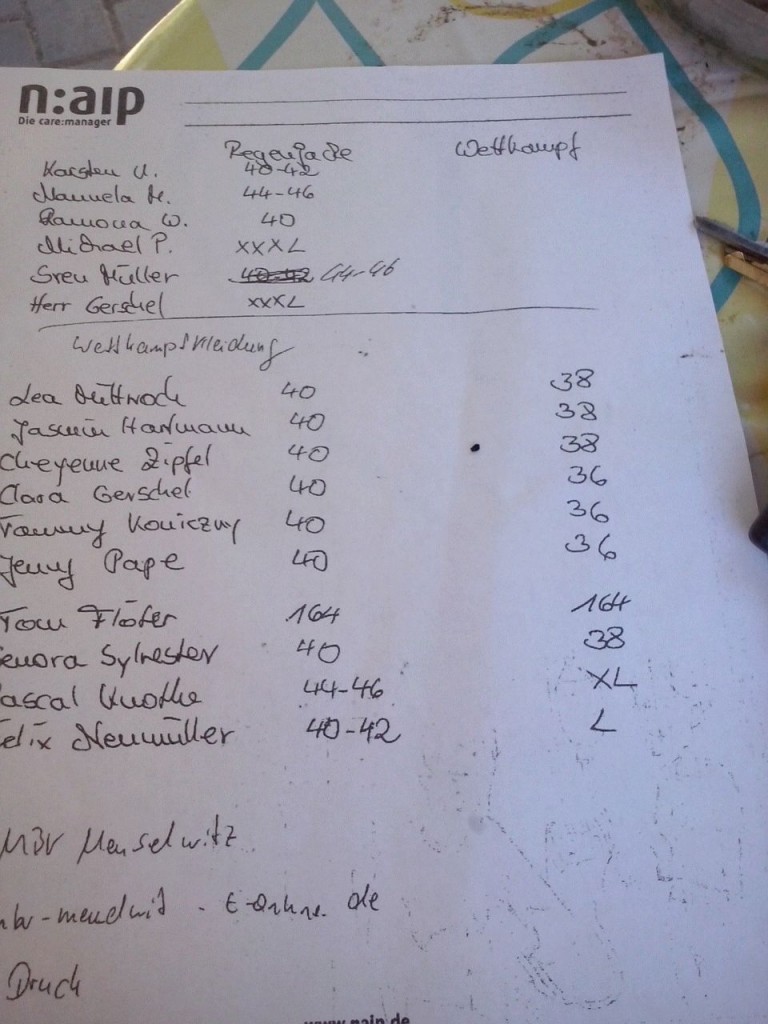 n:aip
Die care:manager
Regenjacke Wettkampf
Karsten U. 40-42
Manuela M. 44-46
Ramona W. 40
Michael P. XXXL
Sven Müller 40-42 44-46
Herr Gerschel XXXL
Wettkampfkleidung
Lea 40 38
Jasmin Hartmann 40 38
Cheyenne Zipfel 40 38
Clara Gerschel 40 36
Tammy Koniczny 40 36
Jenny Pape 40 36
Tom Flöter 164 164
enora Sylvester 40 38
ascal Knothe 44-46 XL
elix Neumüller 40-42 L
Meuselwitz
de
Druck
www.naip.de